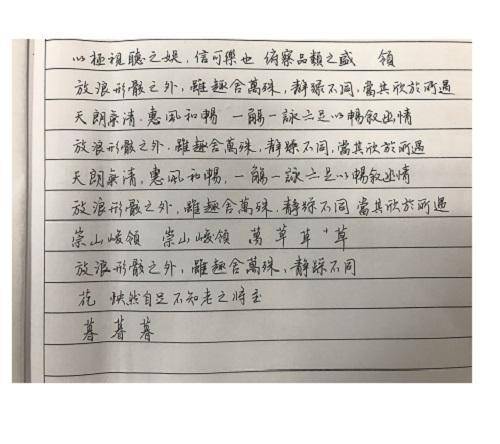 以極視聽之娱，信可樂也 俯察品類之盛 領
放浪形骸之外，雖趣舍萬殊，静躁不同，當其欣於所遇
天朗氣清，惠風和暢 一觴一詠亦足以暢叙幽情
放浪形骸之外，雖趣舍萬殊，静躁不同，當其欣於所遇
天朗氣清，惠風和暢，一觴一詠亦足以暢叙幽情
放浪形骸之外，雖趣舍萬殊，静躁不同 當其欣於所遇
崇山峻領 崇山峻領 萬 草 草 草
放浪形骸之外，雖趣舍萬殊，静躁不同
花 怏然自足不知老之將至
暮 暮 暮